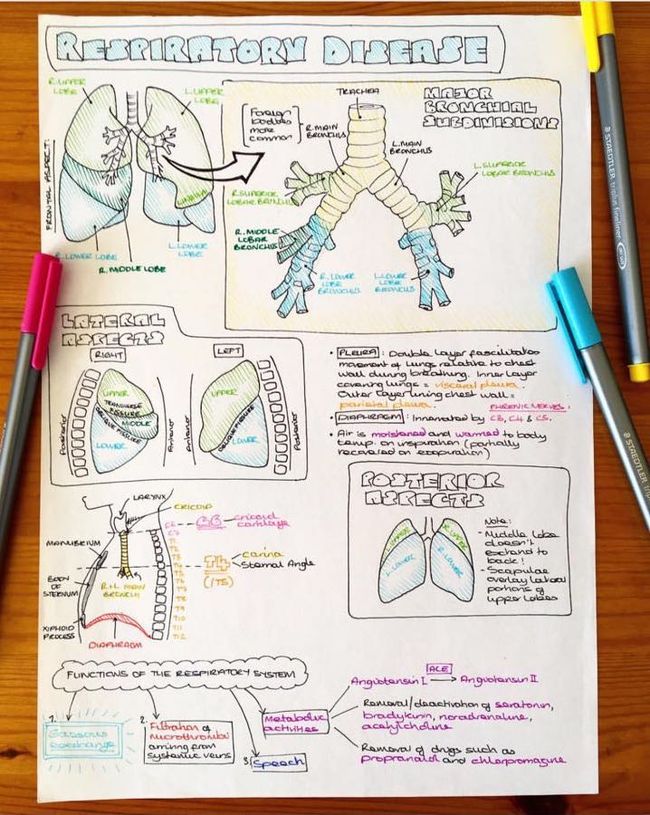 RESPIRATORY DISEASE
R.UPPER
LOBE
L.UPPER
LOBE
FRONTAL ASPECT:
LINGULA
R.LOWER LOBE
R.MIDDLE LOBE
L.LOWER
LOBE
MAJOR
BRONCHIAL
SUBDIVISIONS
TRACHEA
Foreign
bodies
more
common
R.MAIN
BRONCHUS
L.MAIN
BRONCHUS
R.SUPERIOR
LOBAR BRONCHUS
L.SUPERIOR
LOBAR BRONCHUS
R.MIDDLE
LOBAR
BRONCHUS
R.LOWER
LOBE
BRONCHUS
L.LOWER
LOBE
BRONCHUS
LATERAL
ASPECTS
RIGHT
LEFT
Posterior
UPPER
TRANSVERSE
FISSURE
MIDDLE
OBLIQUE FISSURE
LOWER
Anterior
Anterior
UPPER
OBLIQUE FISSURE
LOWER
Posterior
• PLEURA: Double layer fascilitates
movement of lungs relative to chest
wall during breathing. Inner layer
covering lungs = visceral pleura.
Outer layer lining chest wall =
parietal pleura.
PHRENIC NERVES:
• DIAPHRAGM: Innervated by C3, C4 & C5.
• Air is moistened and warmed to body
temp. on inspiration (partially
recovered on expiration)
LARYNX
CRICOID
C6
C7
T1
T2
T3
T4
T5
T6
T7
T8
T9
T10
T11
T12
C6 = cricoid
cartilage
T4 = carina
Sternal Angle
(/T5)
MANUBRIUM
BODY
OF
STERNUM
R+L MAIN
BRONCHI
XIPHOID
PROCESS
DIAPHRAGM
POSTERIOR
ASPECTS
L.UPPER
R.UPPER
L.LOWER
R.LOWER
Note:
• Middle lobe
doesn't
extend to
back!
• Scapulae
overlay lateral
portions of
upper lobes
FUNCTIONS OF THE RESPIRATORY SYSTEM
1.
Gaseous
exchange
2.
Filtration of
microthrombi
arriving from
systemic veins
3.
Speech
Metabolic
activities
ACE
Angiotensin I → Angiotensin II
Removal/deactivation of serotonin,
bradykinin, noradrenaline,
acetylcholine
Removal of drugs such as
propranolol and chlorpromazine
STAEDTLER triplus fineliner
STAEDTLER